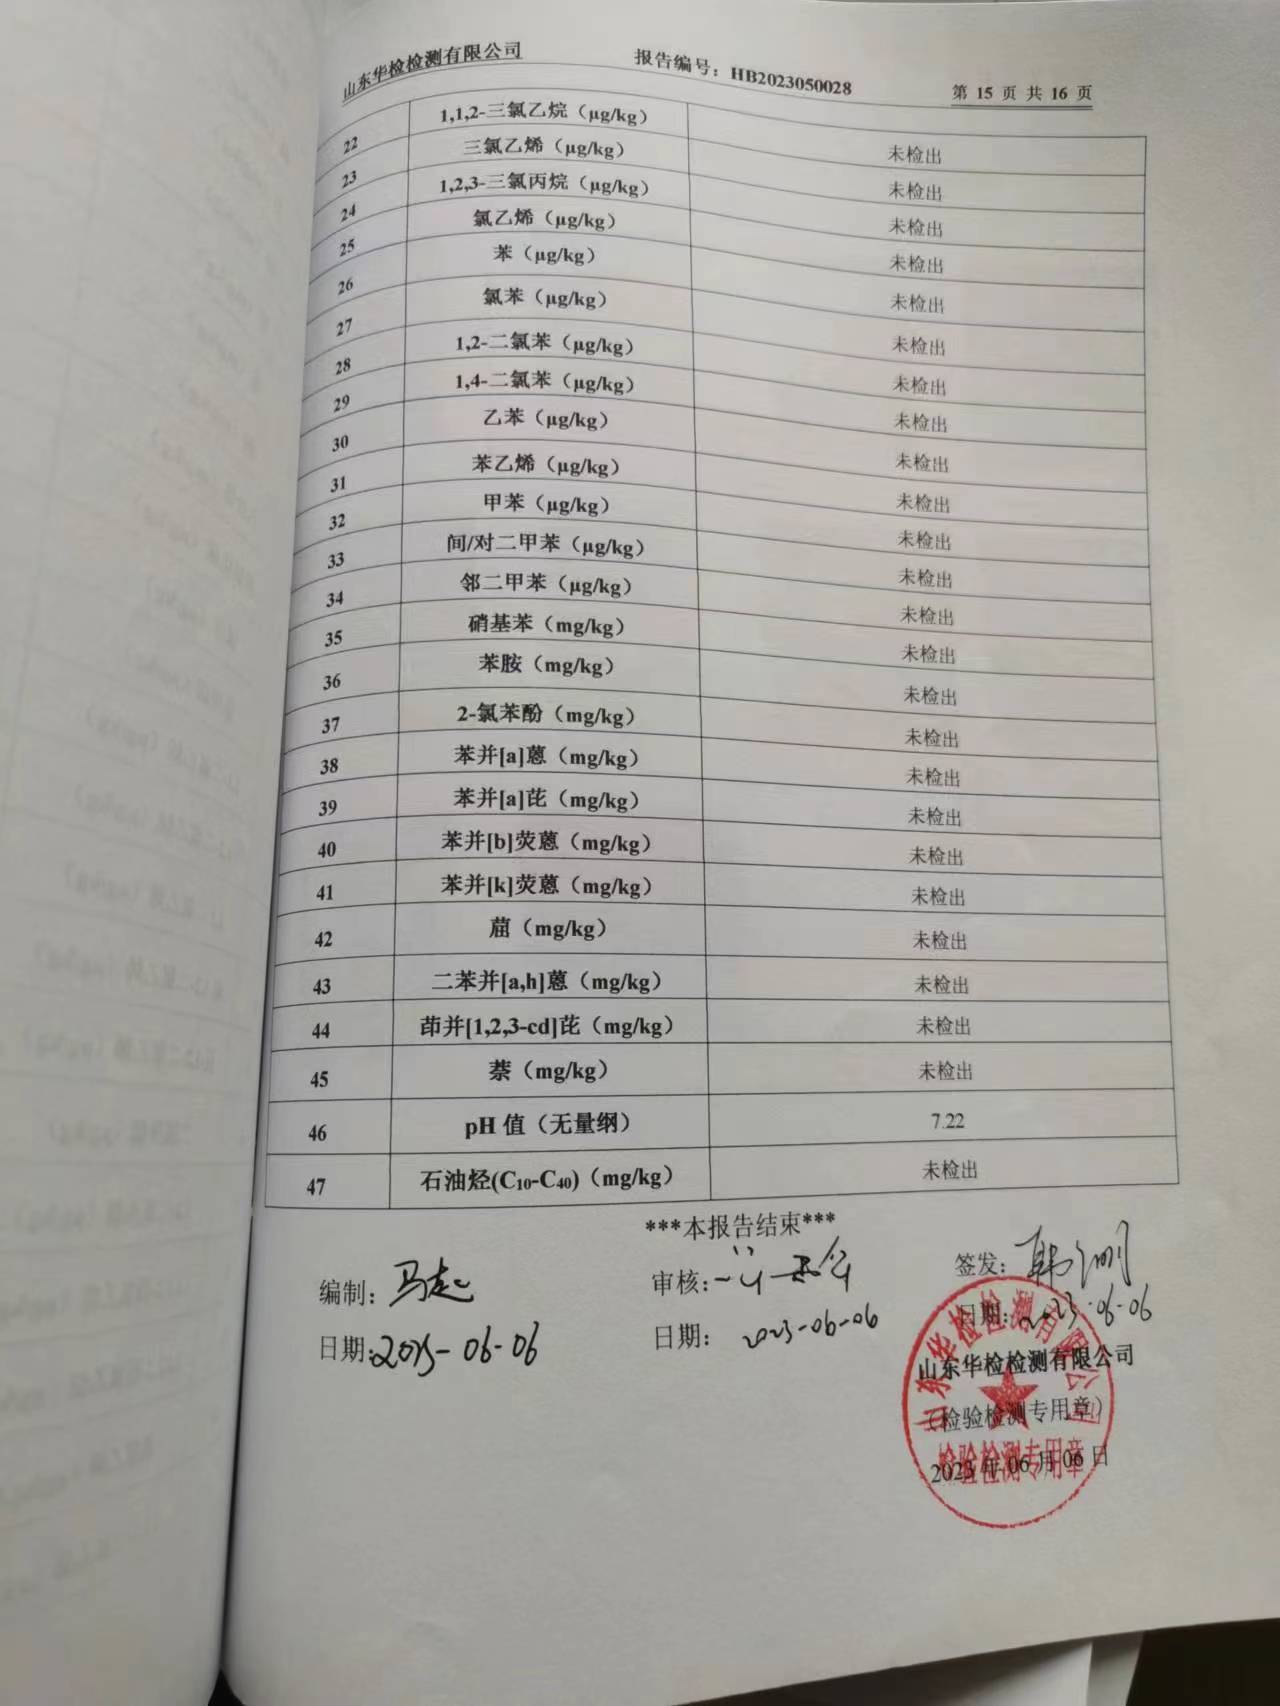 山东华检检测有限公司 报告编号：HB2023050028 第 15 页 共 16 页
22 1,1,2-三氯乙烷（μg/kg） 未检出
23 三氯乙烯（μg/kg） 未检出
24 1,2,3-三氯丙烷（μg/kg） 未检出
25 氯乙烯（μg/kg） 未检出
26 苯（μg/kg） 未检出
27 氯苯（μg/kg） 未检出
28 1,2-二氯苯（μg/kg） 未检出
29 1,4-二氯苯（μg/kg） 未检出
30 乙苯（μg/kg） 未检出
31 苯乙烯（μg/kg） 未检出
32 甲苯（μg/kg） 未检出
33 间/对二甲苯（μg/kg） 未检出
34 邻二甲苯（μg/kg） 未检出
35 硝基苯（mg/kg） 未检出
36 苯胺（mg/kg） 未检出
37 2-氯苯酚（mg/kg） 未检出
38 苯并[a]蒽（mg/kg） 未检出
39 苯并[a]芘（mg/kg） 未检出
40 苯并[b]荧蒽（mg/kg） 未检出
41 苯并[k]荧蒽（mg/kg） 未检出
42 䓛（mg/kg） 未检出
43 二苯并[a,h]蒽（mg/kg） 未检出
44 茚并[1,2,3-cd]芘（mg/kg） 未检出
45 萘（mg/kg） 未检出
46 pH 值（无量纲） 7.22
47 石油烃(C10-C40)（mg/kg） 未检出
***本报告结束***
编制：马起 审核： 签发：韩
日期：2023-06-06 日期：2023-06-06 日期：2023-06-06
山东华检检测有限公司
山东华检检测有限公司
（检验检测专用章）
检验检测专用章
2023 年 06 月 06 日